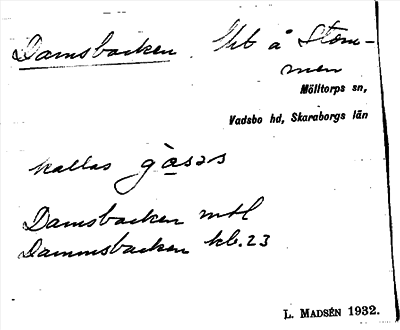 Damsbacken. Hb å Stom-
men
Mölltorps sn,
Vadsbo hd, Skaraborgs län
kallas gasəs
Damsbacken mtl
Dammsbacken kb. 23
L. MADSÉN 1932.